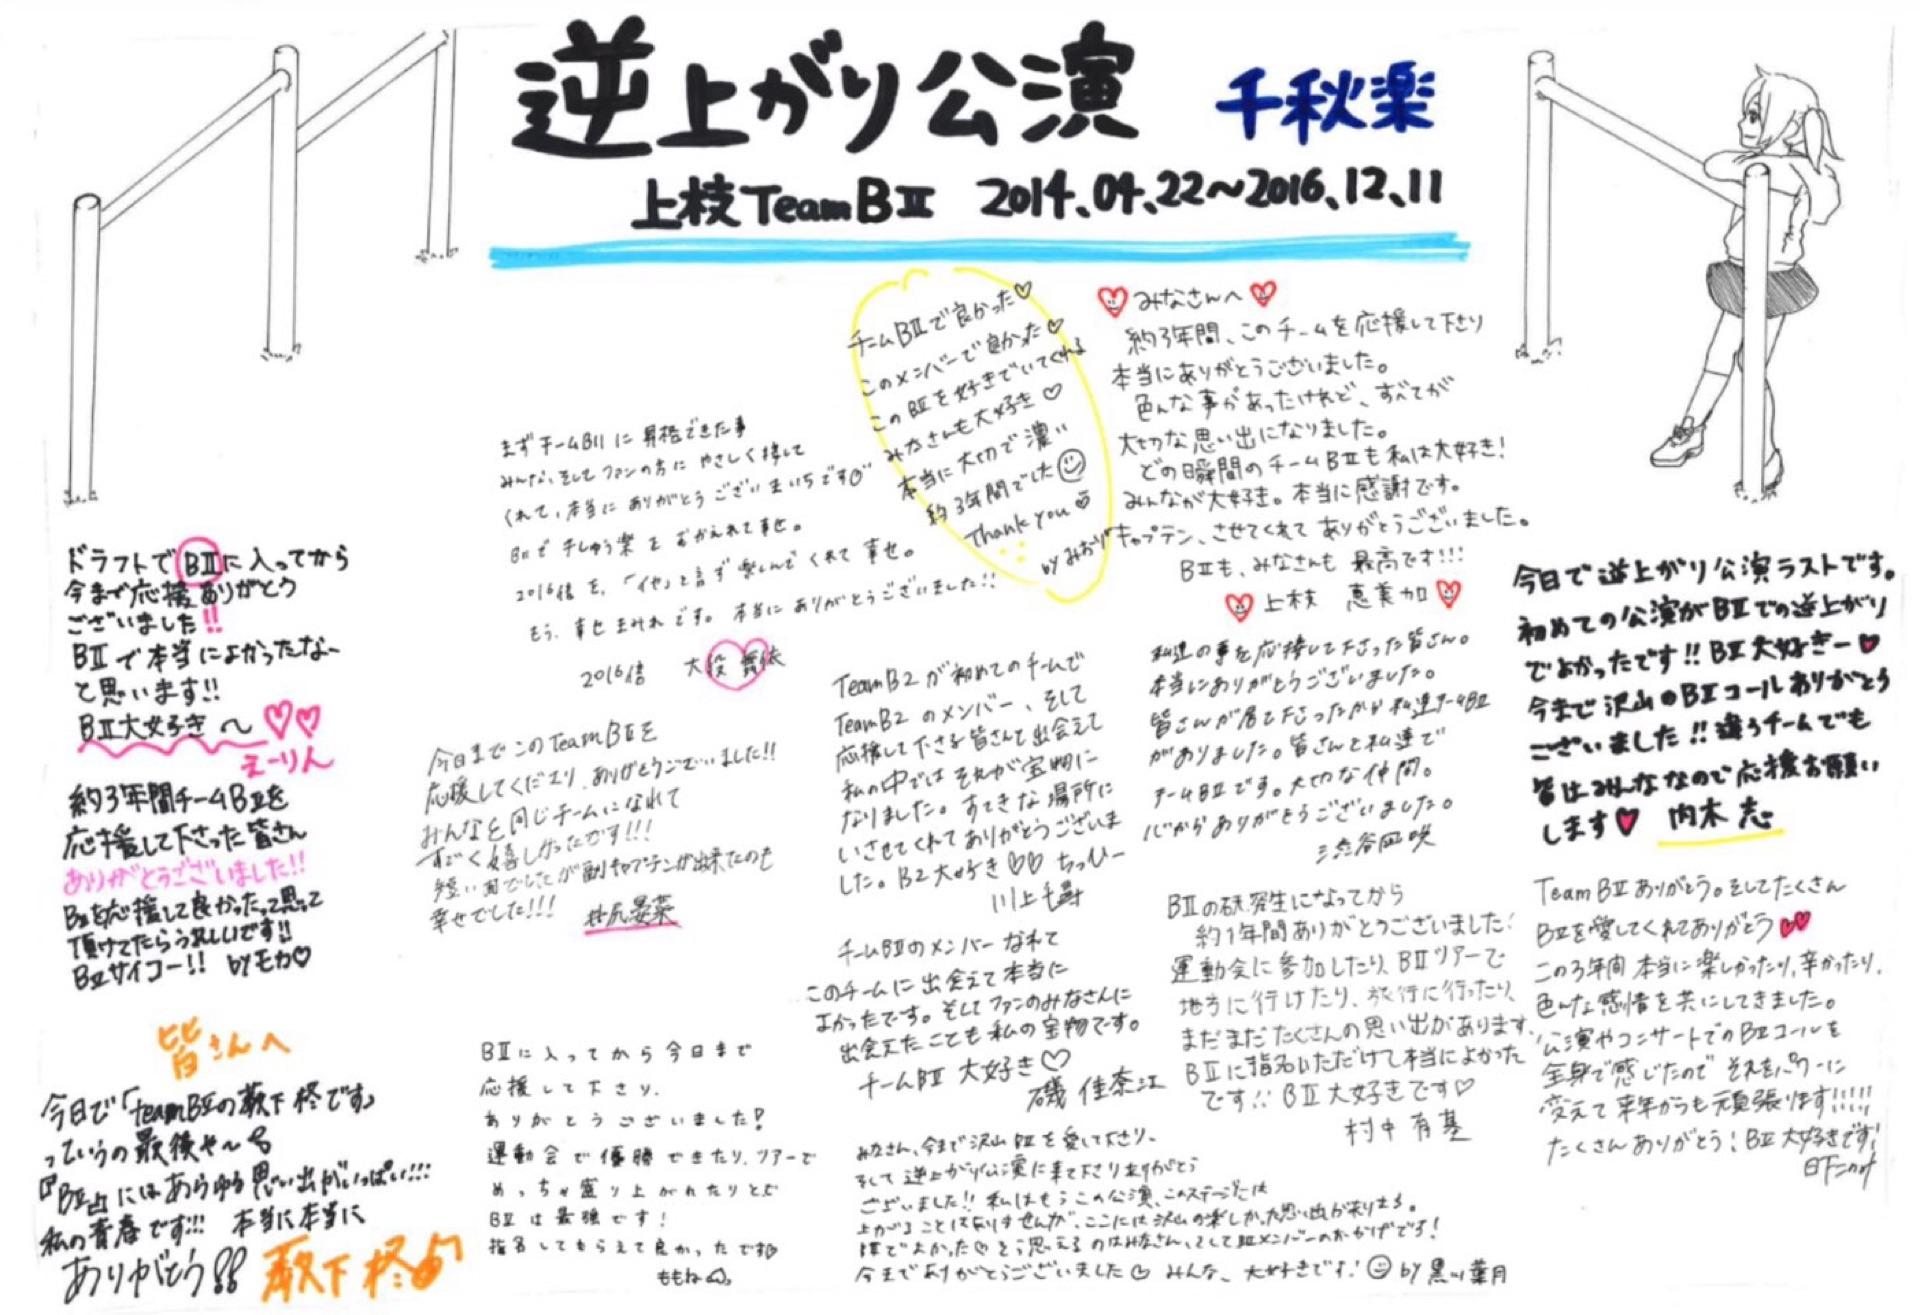 逆上がり公演 千秋楽
上枝TeamBⅡ 2014.04.22～2016.12.11
ドラフトでBⅡに入ってから
今まで応援ありがとう
ございました!!
BⅡで本当によかったなー
と思います!!
BⅡ大好き～♡♡
えーりん
約3年間チームBⅡを
応援して下さった皆さん
ありがとうございました!!
BⅡを応援して良かったって思って
頂けてたらうれしいです!!
BⅡサイコー!! byモカ♡
皆さんへ
今日で「teamBⅡの薮下柊です」
っていうの最後や～
『BⅡ』にはあらゆる思い出がいっぱい!!!
私の青春です!!! 本当に本当に
ありがとう!! 薮下柊
まずチームBⅡに昇格できた事
みんな、そしてファンの方にやさしく接して
くれて、本当にありがとうございまいちです♡
BⅡで千しゅう楽をむかえれて幸せ。
2016倍を、「イヤ」と言ず楽しんでくれて幸せ。
もう、幸せまみれです。本当にありがとうございました!!
2016倍 大段舞依
今日までこのTeamBⅡを
応援してくださり、ありがとうございました!!
みんなと同じチームになれて
すごく嬉しかったです!!!
短い間でしたが副キャプテンが出来たのも
幸せでした!!! 井尻晏菜
BⅡに入ってから今日まで
応援して下さり、
ありがとうございました!
運動会で優勝できたり、ツアーで
めっちゃ盛り上がれたりとで
BⅡは最強です!
指名してもらえて良かったです♡
ももね
チームBⅡで良かった♡
このメンバーで良かった♡
このBⅡを好きでいてくれる
みなさんも大好き♡
本当に大切で濃い
約3年間でした☺
Thank you
by みおりん
TeamB2が初めてのチームで
TeamB2のメンバー、そして
応援して下さる皆さんと出会えて
私の中ではそれが宝物に
なりました。すてきな場所に
いさせてくれてありがとうございま
した。B2大好き♡♡ ちっひー
川上千尋
チームBⅡのメンバーなれて
このチームに出会えて本当に
よかったです。そしてファンのみなさんに
出会えたことも私の宝物です。
チームBⅡ 大好き♡
磯 佳奈江
みなさん、今まで沢山BⅡを愛して下さり、
そして逆上がり公演に来て下さりありがとう
ございました!! 私はもうこの公演、このステージには
上がることはありませんが、ここには沢山の楽しかった思い出があります。
BⅡでよかった♡と思えるのはみなさん、そしてBⅡメンバーのおかげです!
今までありがとうございました♡ みんな、大好きです!☺by 黒川葉月
♡みなさんへ♡
約3年間、このチームを応援して下さり
本当にありがとうございました。
色んな事があったけれど、すべてが
大切な思い出になりました。
どの瞬間のチームBⅡも私は大好き!
みんなが大好き。本当に感謝です。
キャプテン、させてくれてありがとうございました。
BⅡも、みなさんも 最高です!!!
♡上枝 恵美加♡
私達の事を応援して下さった皆さん。
本当にありがとうございました。
皆さんが居て下さったから私達チームBⅡ
がありました。皆さんと私達で
チームBⅡです。大切な仲間。
心からありがとうございました。
渋谷凪咲
BⅡの研究生になってから
約1年間ありがとうございました!
運動会に参加したり、BⅡツアーで
地方に行けたり、旅行に行ったり、
まだまだたくさんの思い出があります。
BⅡに指名いただけて本当によかった
です!! BⅡ大好きです♡
村中 有基
今日で逆上がり公演ラストです。
初めての公演がBⅡでの逆上がり
でよかったです!! BⅡ大好きー♥
今まで沢山のBⅡコールありがとう
ございました!! 違うチームでも
皆はみんななので応援お願い
します♥ 内木 志
TeamBⅡありがとう。そしてたくさん
BⅡを愛してくれてありがとう♥♥
この3年間 本当に楽しかったり、辛かったり、
色んな感情を共にしてきました。
公演やコンサートでのBⅡコールを
全身で感じたので それをパワーに
変えて来年からも頑張ります!!!!!
たくさんありがとう!BⅡ大好きです!
日下このみ